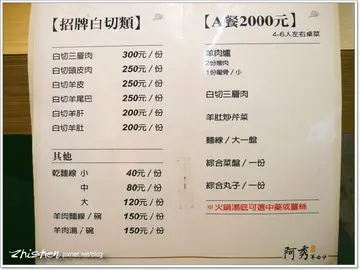 【招牌白切類】
白切三層肉 300元/份
白切頭皮肉 250元/份
白切羊皮 250元/份
白切羊尾巴 250元/份
白切羊肝 200元/份
白切羊肚 200元/份
其他
乾麵線 小 40元/份
中 80元/份
大 120元/份
羊肉麵線/碗 150元/份
羊肉湯/碗 150元/份
【A餐2000元】
4-6人左右桌菜
羊肉爐
2份嫩肉
1份龍骨/小
白切三層肉
羊肚炒芹菜
麵線/大一盤
綜合菜盤/一份
綜合丸子/一份
※火鍋湯底可選中藥或薑絲
阿秀
Zhishen.pixnet.net/blog